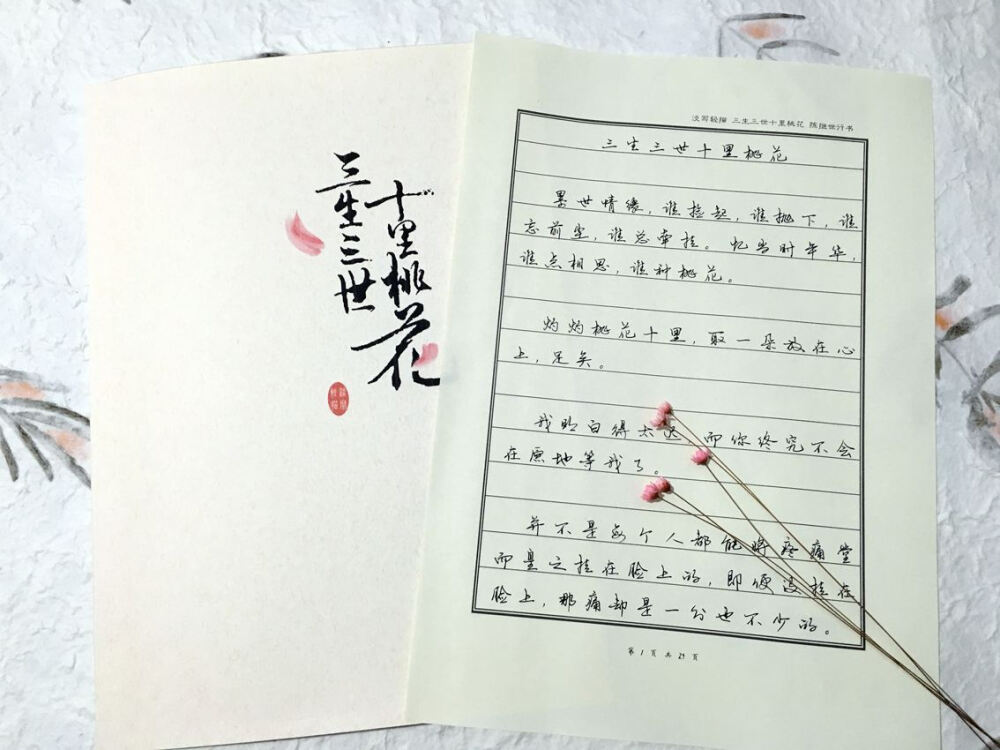 三生三世
十里桃花
淡写轻描 三生三世十里桃花 陈继世行书
三生三世十里桃花
累世情缘，谁捡起，谁抛下，谁
忘前尘，谁总牵挂。忆当时年华，
谁点相思，谁种桃花。
灼灼桃花十里，取一朵放在心
上，足矣。
我明白得太迟 而你终究不会
在原地等我了。
并不是每个人都能将疼痛堂
而皇之挂在脸上的，即便没挂在
脸上，那痛却是一分也不少的。
第 1 页 共 29 页